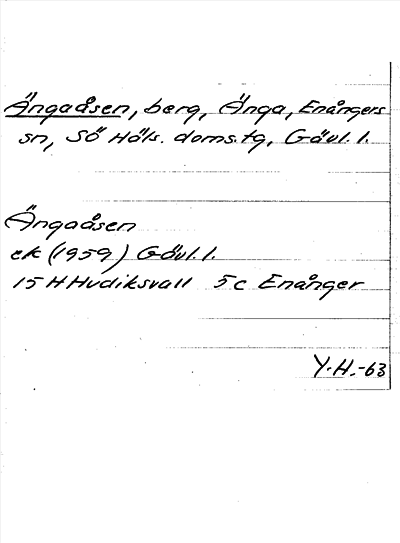 Ängaåsen, berg, Änga, Enångers
sn, Sö Häls. doms.tg, Gävl.l.
Ängaåsen
ek (1959) Gävl.l.
15 H Hudiksvall 5c Enånger
Y.H.-63